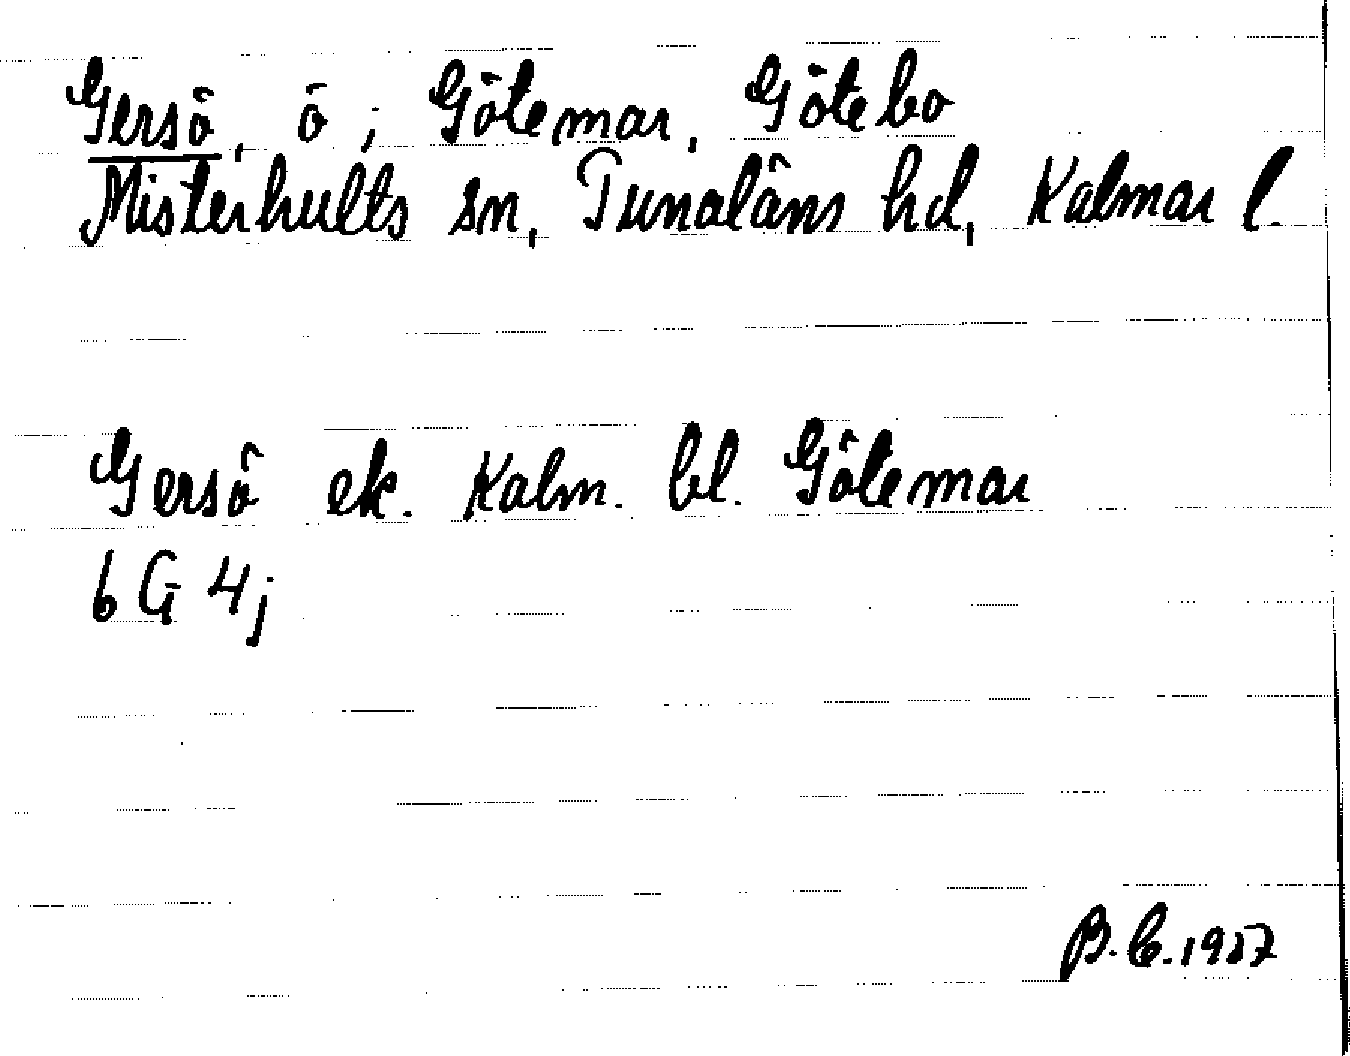 Gersö, ö; Götemar, Götebo
Misterhults sn, Tunaläns hd, Kalmar l.
Gersö ek. Kalm. bl. Götemar
6G 4j
B.C. 1957